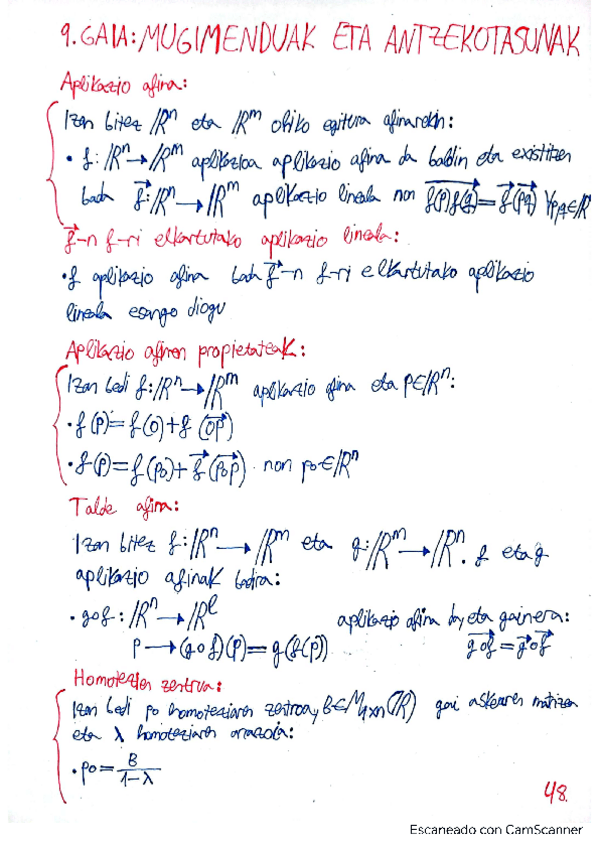 9. GAIA: MUGIMENDUAK ETA ANTZEKOTASUNAK
Aplikazio afina:
Izan bitez ℝⁿ eta ℝᵐ ohiko egitura afinarekin:
• f: ℝⁿ → ℝᵐ aplikazioa aplikazio afina da baldin eta existitzen
bada f⃗: ℝⁿ → ℝᵐ aplikazio lineala non f(p)f(q)⃗ = f⃗(pq⃗) ∀p,q∈ℝ
f⃗-n f-ri elkartutako aplikazio lineala:
• f aplikazio afina bada f⃗-n f-ri elkartutako aplikazio
lineala esango diogu
Aplikazio afinen propietateak:
Izan bedi f: ℝⁿ → ℝᵐ aplikazio afina eta p∈ℝⁿ:
• f(p) = f(0) + f(OP⃗)
• f(p) = f(p0) + f⃗(p0p⃗) non p0∈ℝⁿ
Talde afina:
Izan bitez f: ℝⁿ → ℝᵐ eta g: ℝᵐ → ℝⁿ. f eta g
aplikazio afinak badira:
• gof: ℝⁿ → ℝˡ aplikazio afina da, eta gainera:
p → (gof)(p) = g(f(p)) gof⃗ = g⃗of⃗
Homotezien zentrua:
Izan bedi p0 homoteziaren zentroa, B∈M1xn(ℝ) gai askearen matrizea
eta λ homoteziaren arrazoia:
• p0 = B/(1-λ)
48.
Escaneado con CamScanner